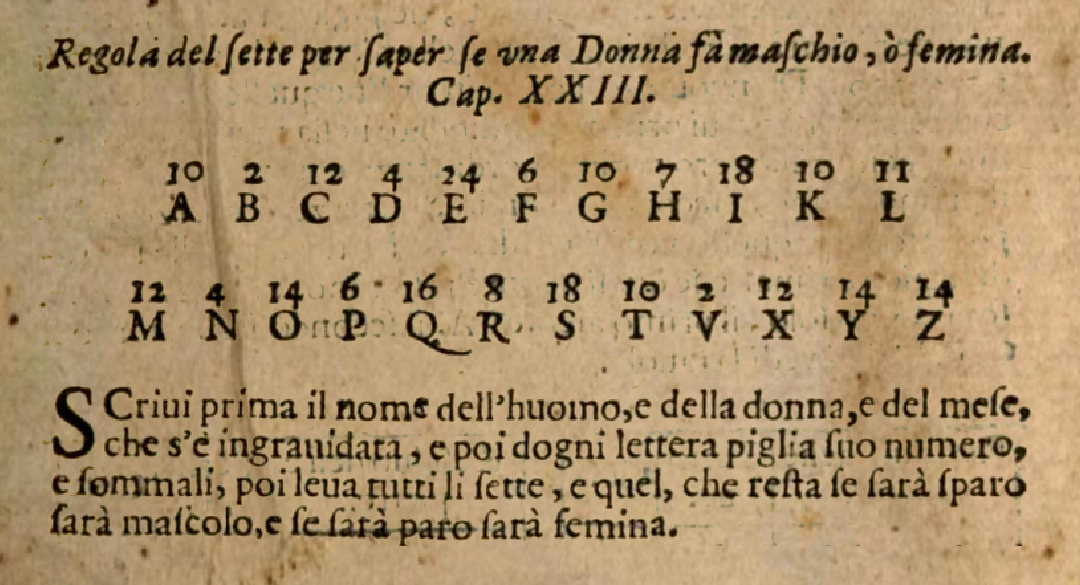 Regola del ſette per ſaper ſe vna Donna fà maſchio, ò femina.
Cap. XXIII.
10 2 12 4 24 6 10 7 18 10 11
A B C D E F G H I K L
12 4 14 6 16 8 18 10 2 12 14 14
M N O P Q R S T V X Y Z
SCriui prima il nome dell'huomo, e della donna, e del meſe,
che s'è ingrauidata, e poi dogni lettera piglia ſuo numero,
e ſommali, poi leua tutti li ſette, e quel, che reſta ſe ſarà ſparo
ſarà maſcolo, e ſe ſarà paro ſarà femina.